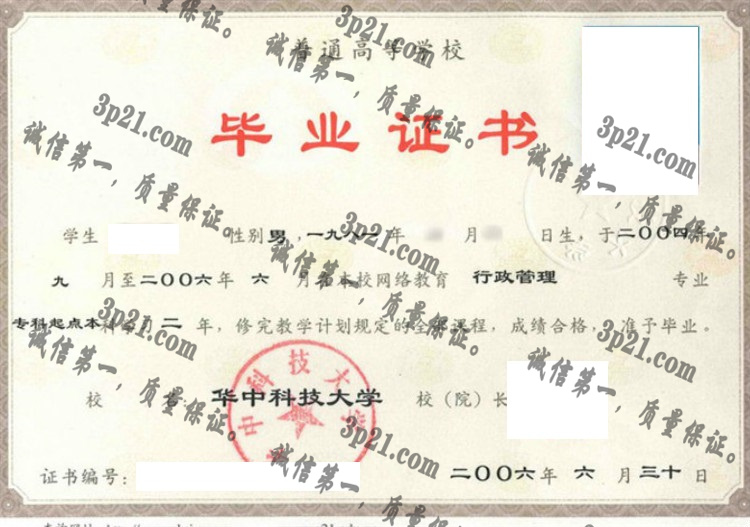 普通高等学校
毕业证书
学生 性别 男 ,一九八一 年 月 日生,于二〇〇四年
九 月至二〇〇六年 六 月在本校网络教育 行政管理 专业
专科起点本科学习 二 年,修完教学计划规定的全部课程,成绩合格,准予毕业。
校 名: 华中科技大学 校(院)长
证书编号: 二〇〇六年 六 月三十日
华中科技大学
3p21.com
诚信第一,质量保证。
3p21.com
诚信第一,质量保证。
3p21.com
诚信第一,质量保证。
3p21.com
诚信第一,质量保证。
3p21.com
诚信第一,质量保证。
3p21.com
诚信第一,质量保证。
3p21.com
诚信第一,质量保证。
3p21.com